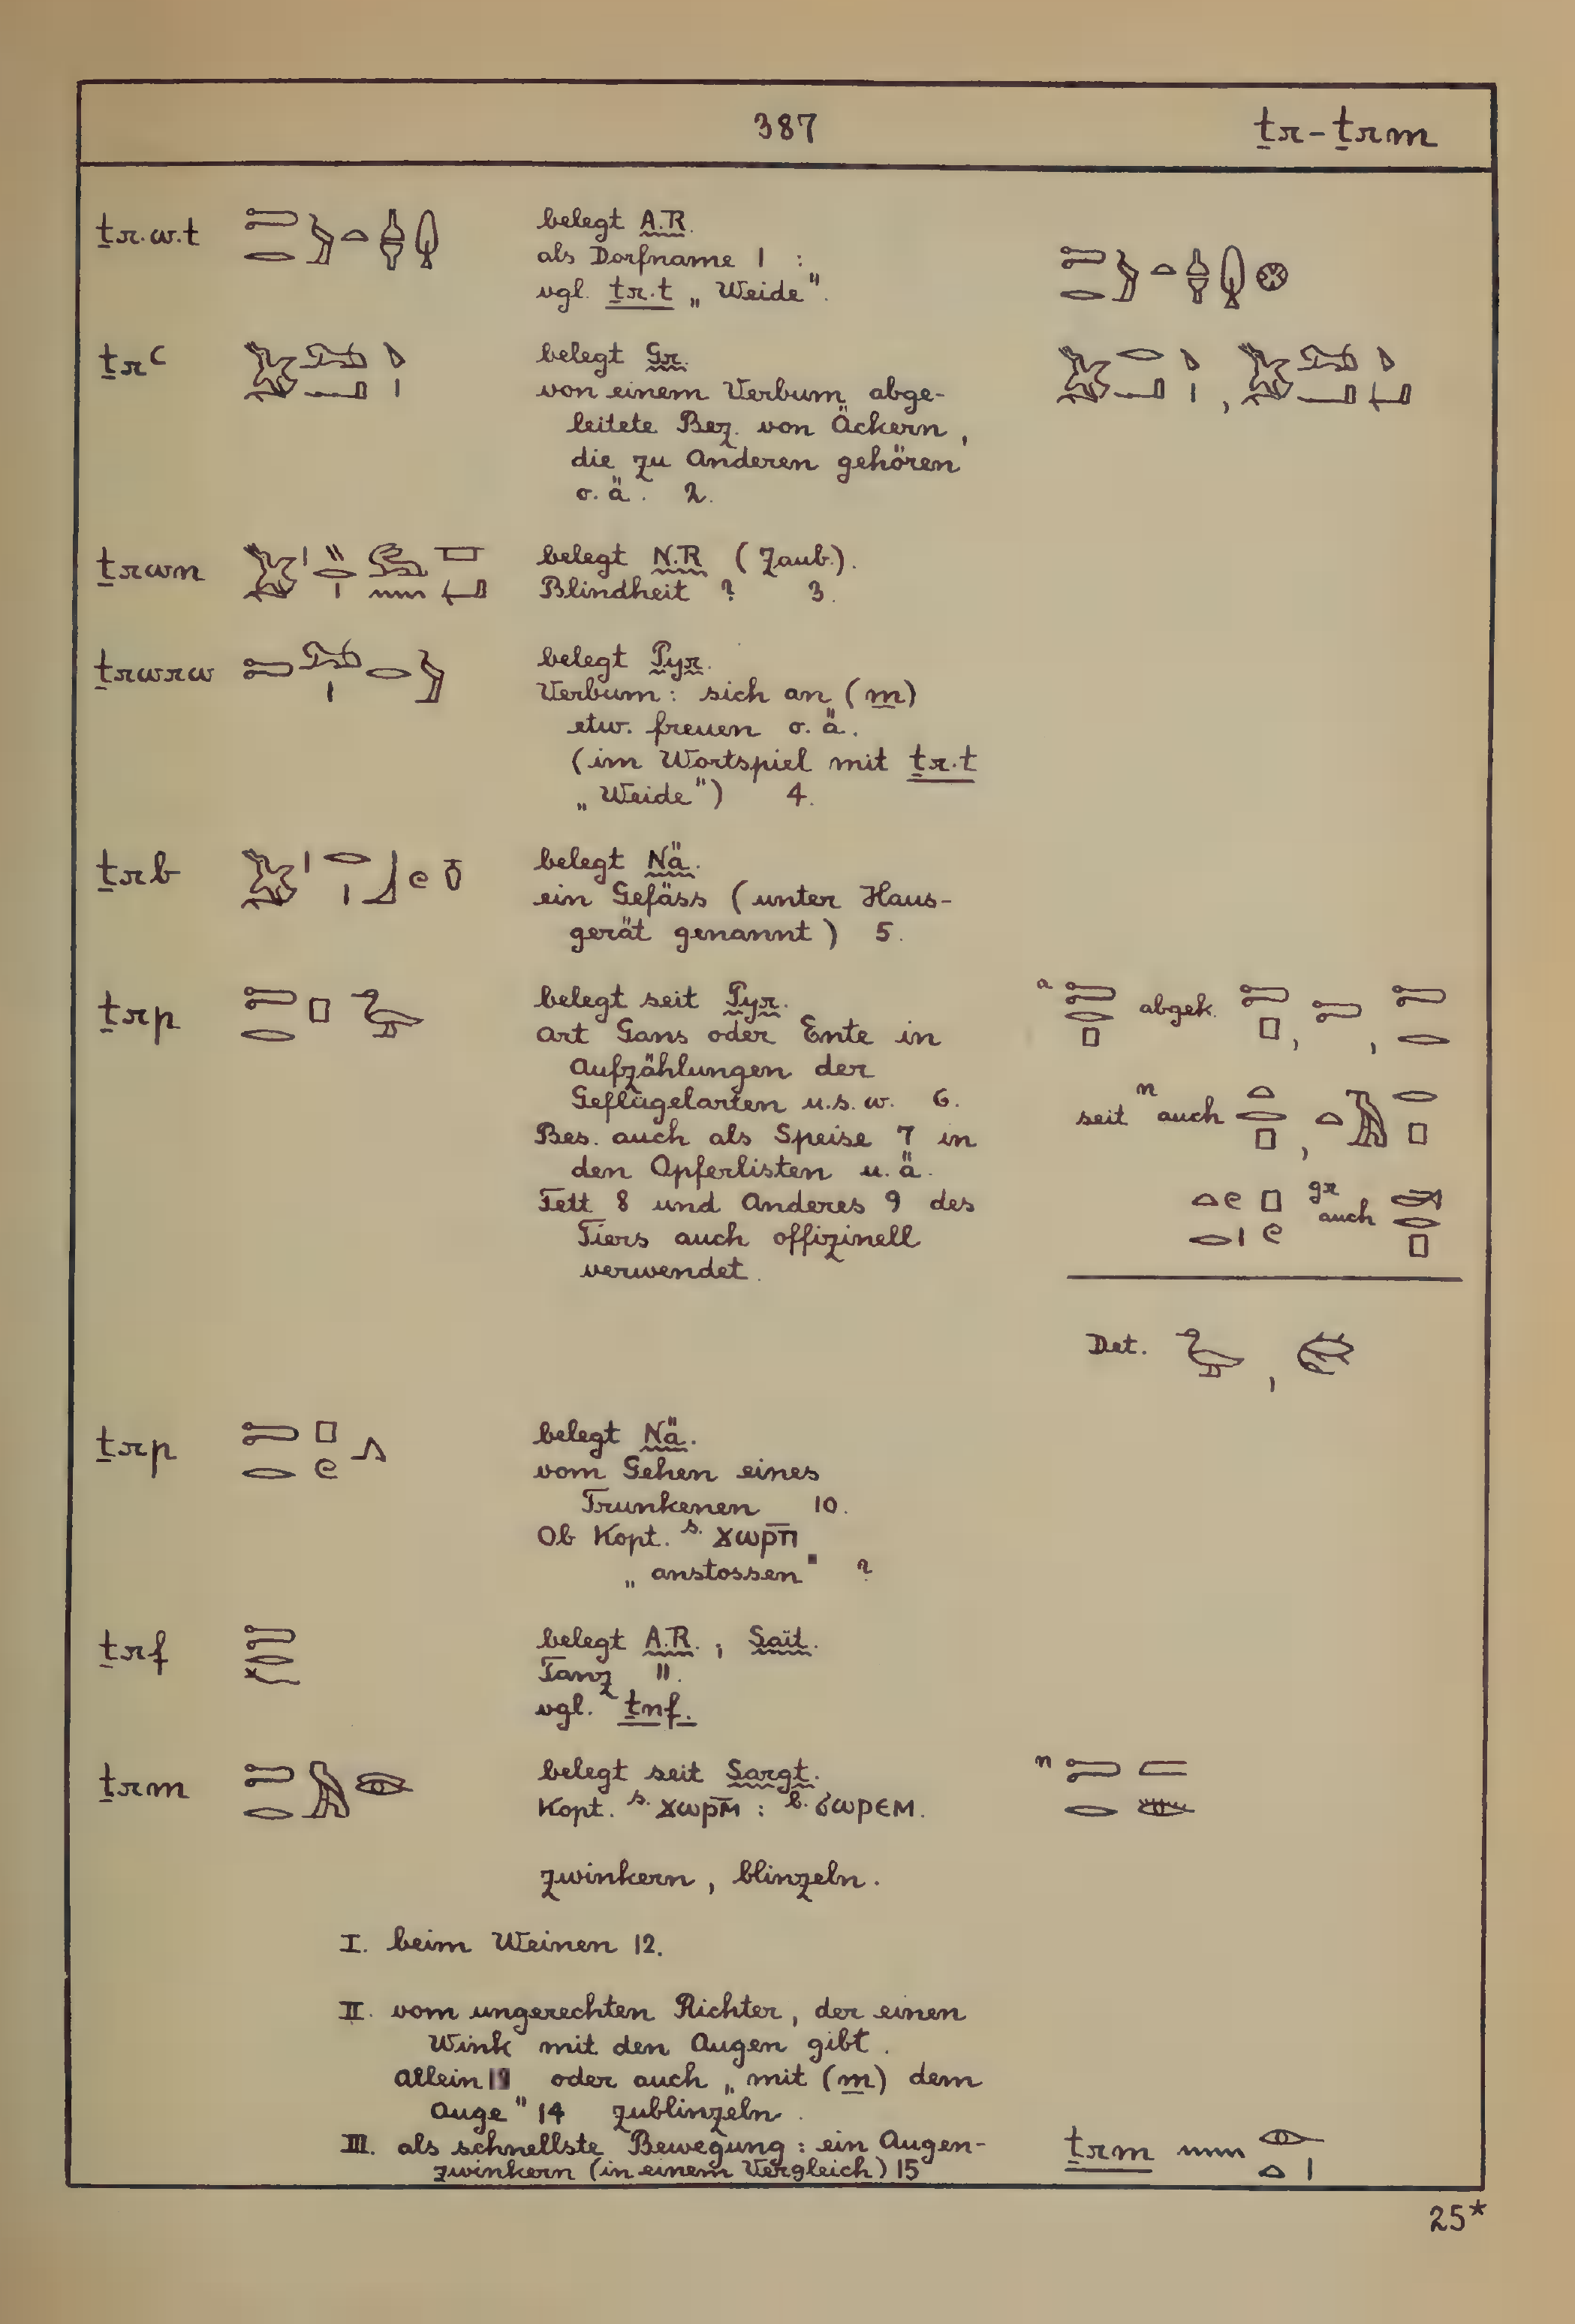 387 ṯr-ṯrm
ṯr.w.t belegt A.R.
als Dorfname 1 :
vgl. ṯr.t „Weide".
ṯrꜥ belegt Gr.
von einem Verbum abge-
leitete Bez. von Äckern,
die zu Anderen gehören
o.ä. 2.
ṯrwn belegt N.R (Zaub.).
Blindheit ? 3.
ṯrwrw belegt Pyr.
Verbum: sich an (m)
etw. freuen o.ä.
(im Wortspiel mit ṯr.t
„Weide") 4.
ṯrb belegt Nä.
ein Gefäss (unter Haus-
gerät genannt) 5.
ṯrp belegt seit Pyr. a abgek. , ,
Art Gans oder Ente in
Aufzählungen der
Geflügelarten u.s.w. 6. seit n auch ,
Bes. auch als Speise 7 in
den Opferlisten u.ä.
Fett 8 und Anderes 9 des gr auch
Tiers auch offizinell
verwendet.
Det. ,
ṯrp belegt Nä.
vom Gehen eines
Trunkenen 10.
Ob Kopt. s. ϫωρⲡ̅
„anstossen" ?
ṯrf belegt A.R. ; Saït.
Tanz 11.
vgl. ṯnf.
ṯrm belegt seit Sargt. n
Kopt. s. ϫωρⲙ̅ : b. ϭωρεⲙ.
zwinkern, blinzeln.
I. beim Weinen 12.
II. vom ungerechten Richter, der einen
Wink mit den Augen gibt.
Allein 13 oder auch „mit (m) dem
Auge" 14 zublinzeln.
III. als schnellste Bewegung: ein Augen- ṯrm
zwinkern (in einem Vergleich) 15
25*